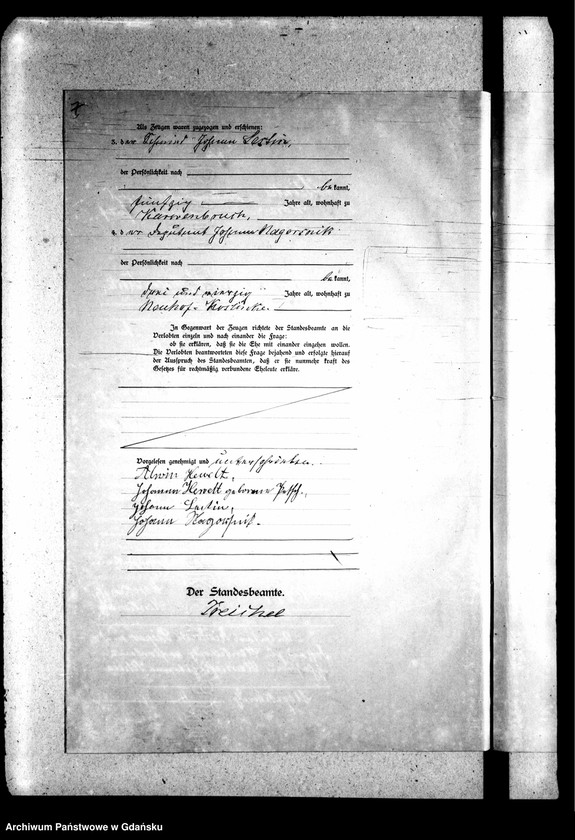 Als Zeugen waren zugezogen und erschienen:
3. der Johann Lestin,
der Persönlichkeit nach
bekannt,
fünfzig Jahre alt, wohnhaft zu
Karwenbruch,
4. der Deputant Johann Nagorsnik
der Persönlichkeit nach
bekannt,
drei und vierzig Jahre alt, wohnhaft zu
Neuhof
In Gegenwart der Zeugen richtete der Standesbeamte an die
Verlobten einzeln und nach einander die Frage:
ob sie erklären, daß sie die Ehe mit einander eingehen wollen.
Die Verlobten beantworteten diese Frage bejahend und erfolgte hierauf
der Ausspruch des Standesbeamten, daß er sie nunmehr kraft des
Gesetzes für rechtmäßig verbundene Eheleute erkläre.
Vorgelesen genehmigt und unterschrieben.
Alwin Hewelt,
Johanna Hewelt geborene
Johann Lestin,
Johann Nagorsnik.
Der Standesbeamte.
Treichel
Archiwum Państwowe w Gdańsku